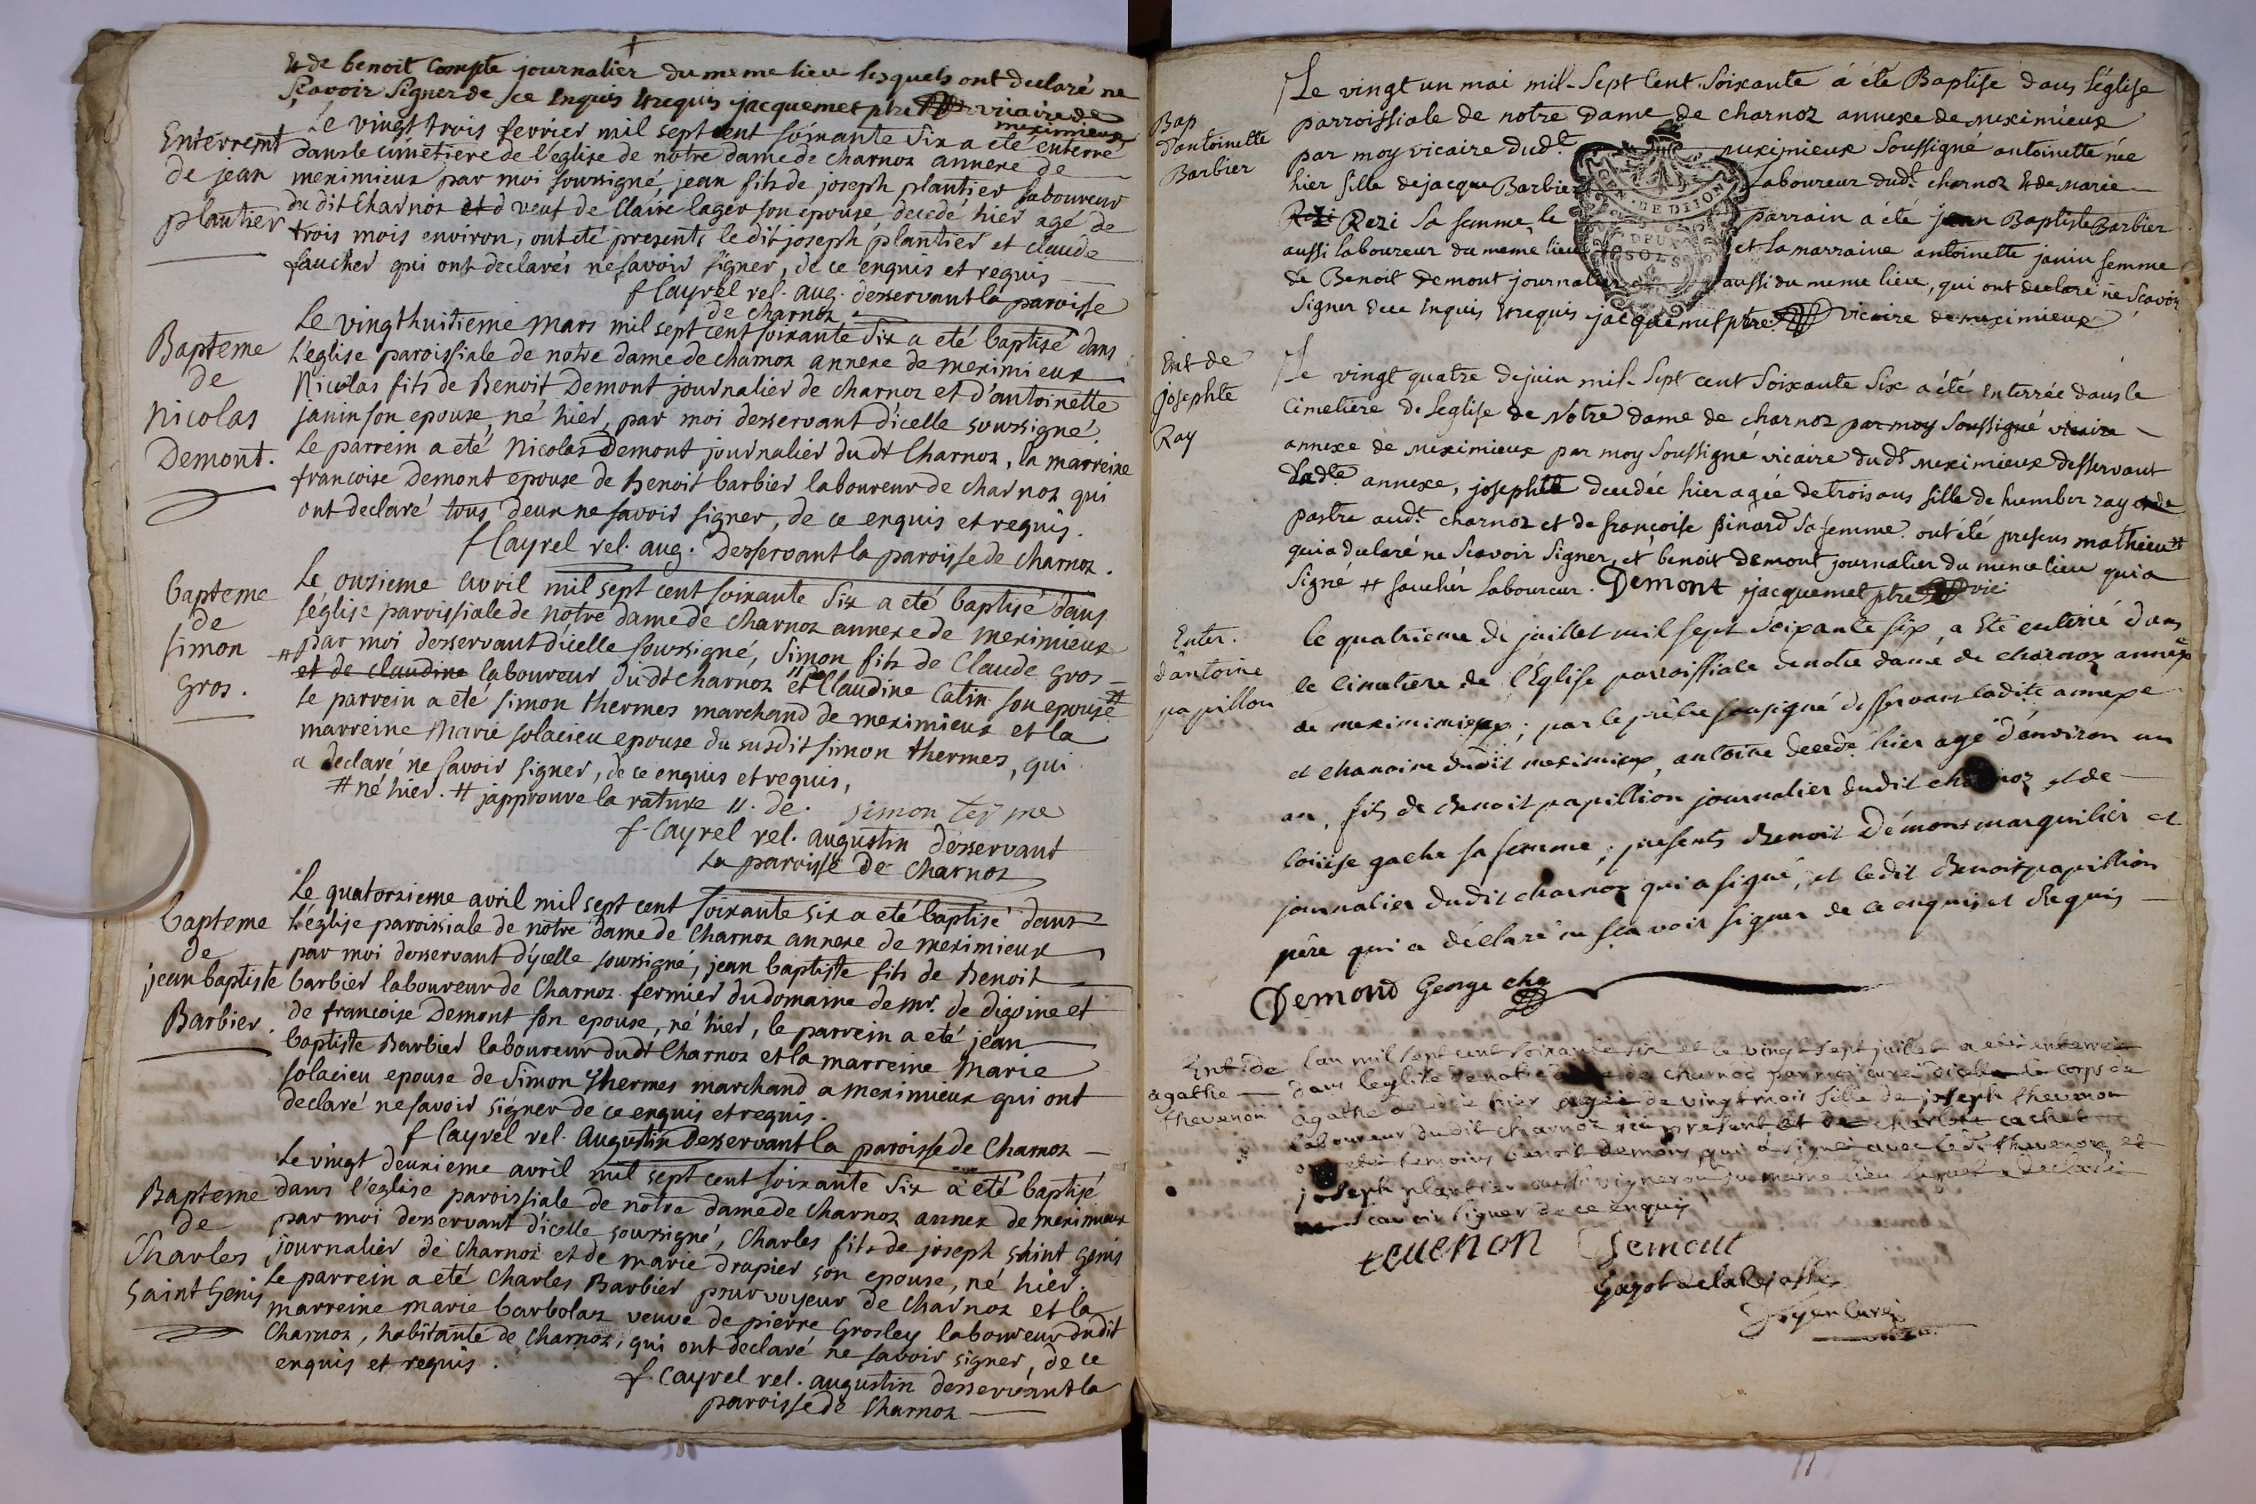 & de benoit Compte journalier du meme lieu lesquels ont declaré ne
Scavoir Signer de ice Enquis & requis jacquemet ptre vicaire de
meximieux
Enterremt
de jean
plantier
Le vingt trois fevrier mil sept cent soixante six a eté enterré
dans le cimetiere de l'eglise de notre dame de charnoz annexe de
meximieux par moi soussigné, jean fils de joseph plantier laboureur
du dit Charnoz et d veuf de Claire lager son epouse decedé hier agé de
trois mois environ, ont eté presents le dit joseph plantier et claude
faucher qui ont declarés ne savoir signer, de ce enquis et requis
f Cayrel rel. aug. desservant la paroisse
de charnoz
Bapteme
de
Nicolas
Demont.
Le vingt huitieme mars mil sept cent soixante six a eté baptisé dans
l'eglise paroissiale de notre dame de charnoz annexe de meximieux
Nicolas fils de Benoit Demont journalier de charnoz et d'antoinette
janin son epouse, né hier, par moi desservant d'icelle soussigné.
Le parrein a eté Nicolas Demont journalier du dt Charnoz, la marreine
francoise Demont epouse de Benoit barbier laboureur de charnoz qui
ont declaré tous deux ne savoir signer, de ce enquis et requis.
f Cayrel rel. aug. Desservant la paroisse de Charnoz.
bapteme
de
simon
Gros.
Le onzieme avril mil sept cent soixante six a eté baptisé dans
l'eglise paroissiale de notre dame de Charnoz annexe de meximieux
par moi desservant d'icelle soussigné, Simon fils de Claude Gros
# et de claudine laboureur du dt Charnoz et Claudine Catin son epouse #
le parrein a eté simon thermes marchand de meximieux et la
marreine Marie solacieu epouse du susdit simon thermes, qui
a declaré ne savoir signer, de ce enquis et requis,
# né hier. # japprouve la rature
simon
f. Cayrel rel. augustin desservant
la paroisse de Charnoz
bapteme
de
jean baptiste
Barbier.
Le quatorzieme avril mil sept cent soixante six a eté baptisé dans
L'eglise paroissiale de notre dame de Charnoz annexe de meximieux
par moi desservant d'ycelle soussigné, jean baptiste fils de Benoit
barbier laboureur de Charnoz fermier du domaine de mr. de digoine et
de francoise Demont son epouse, né hier, le parrein a eté jean
baptiste Barbier laboureur du dt Charnoz et la marreine Marie
solacieu epouse de Simon thermes marchand a meximieux qui ont
declaré ne savoir signer de ce enquis et requis.
f Cayrel rel. Augustin Desservant la paroisse de Charnoz
Bapteme
de
Charles
Saint Genis
Le vingt deuxieme avril mil sept cent soixante six a eté baptisé
dans l'eglise paroissiale de notre dame de Charnoz annex de meximieux
par moi desservant d'icelle soussigné, Charles fils de joseph saint Genis
journalier de Charnoz et de marie drapier son epouse, né hier.
Le parrein a eté Charles Barbier pourvoyeur de Charnoz et la
marreine marie barbolaz veuve de pierre Grosley laboureur du dit
Charnoz, habitante de Charnoz, qui ont declaré ne savoir signer, de ce
enquis et requis.
f. Cayrel rel. augustin desservant la
paroisse de Charnoz
Bap
d'antoinette
Barbier
Le vingt un mai mil Sept Cent Soixante a été Baptisé dans l'église
parroissiale de notre Dame de charnoz annexe de meximieux
par moy vicaire dud.t meximieux Soussigné antoinette née
hier fille de jacque Barbier Laboureur dud.t charnoz & de Marie
Rezi Sa femme, le parrain a été jean Baptiste Barbier
aussi laboureur du meme lieu et la marraine antoinette janin femme
de Benoit demont journalier aussi du meme lieu, qui ont declaré ne Scavoir
Signer de ce Enquis & requis jacquemet ptre vicaire de meximieux
GEN. DE DIJON
DEUX
SOLS
Ent de
josephte
Ray
Le vingt quatre de juin mil Sept cent Soixante Six a été Enterrée dans le
Cimetiere de l'eglise de Notre dame de charnoz par moy Soussigné vicaire
annexe de meximieux par moy Soussigné vicaire du dt meximieux desservant
lad.te annexe, josephte decedée hier agée de trois ans fille de humber ray
pastre aud.t charnoz et de françoise pinard Sa femme. ont été presens mathieu #
qui a declaré ne Scavoir Signer, et benoit demont journalier du meme lieu qui a
Signé # faucher Laboureur. Demont jacquemet ptre vic
Enter.
d'antoine
papillon
le quatrieme de juillet mil sept soixante six, a été enterré dans
le cimetiere de l'Eglise parroissiale de notre dame de charnoz annexe
de meximieux; par le prêtre soussigné desservant ladite annexe
et chanoine dudit meximieux, antoine decedé hier agé d'environ un
an, fils de Benoit papillion journalier dudit charnoz et de
louise gache sa femme; presents Benoit Démont marguilier et
journalier dudit charnoz qui a signé, et ledit Benoit papillion
père qui a déclaré ne sçavoir signer de ce enquis et Requis
Demond George cha
Ent. de
agathe
thevenon
Lan mil sept cent soixante six et le vingt sept juillet a été enterrée
dans leglise de notre dame de charnoz par moi curé dicelle le corps de
agathe decedée hier agée de vingt mois fille de joseph thevenon
laboureur du dit charnoz ici present et de charlote cachet
ont été temoins benoit demont qui a signé avec le dt thevenon et
joseph plantier aussi vigneron du meme lieu lequel a declaré
ne scavoir signer de ce enquis
tevenon Demont